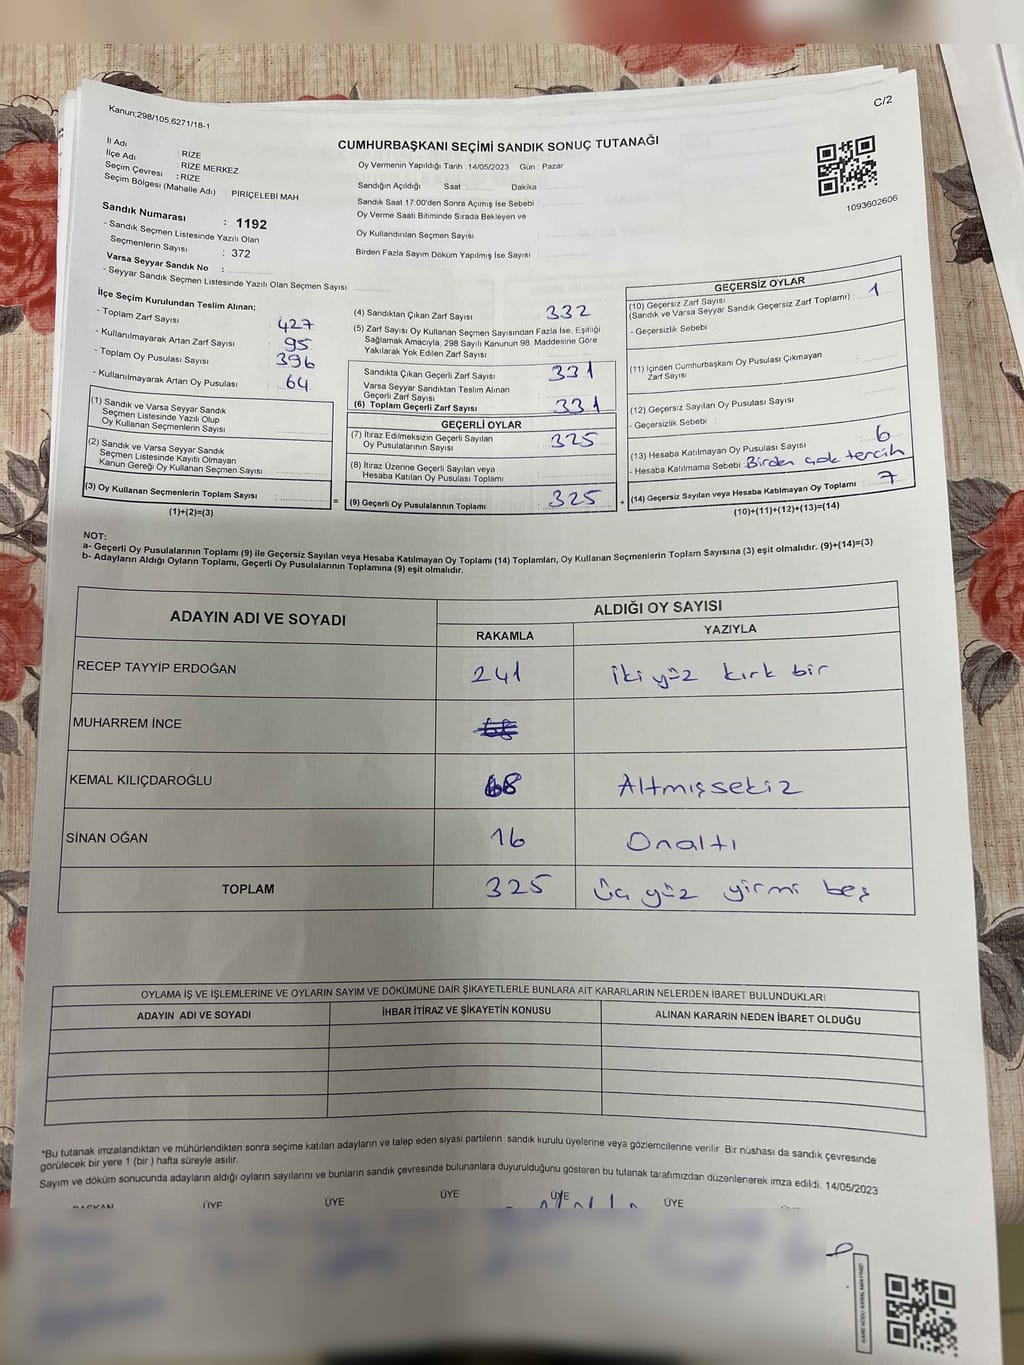 Kanun;298/105,6271/18-1
C/2
CUMHURBAŞKANI SEÇİMİ SANDIK SONUÇ TUTANAĞI
İl Adı : RİZE
İlçe Adı : RİZE MERKEZ
Seçim Çevresi : RİZE
Seçim Bölgesi (Mahalle Adı) : PİRİÇELEBİ MAH
Oy Vermenin Yapıldığı Tarih : 14/05/2023 Gün : Pazar
Sandığın Açıldığı Saat : Dakika :
Sandık Saat 17:00'den Sonra Açımış İse Sebebi :
Oy Verme Saati Bitiminde Sırada Bekleyen ve
Oy Kullandırılan Seçmen Sayısı :
Birden Fazla Sayım Döküm Yapılmış İse Sayısı :
1093602606
Sandık Numarası : 1192
- Sandık Seçmen Listesinde Yazılı Olan
Seçmenlerin Sayısı : 372
Varsa Seyyar Sandık No :
- Seyyar Sandık Seçmen Listesinde Yazılı Olan Seçmen Sayısı:
İlçe Seçim Kurulundan Teslim Alınan;
- Toplam Zarf Sayısı : 427
- Kullanılmayarak Artan Zarf Sayısı : 95
- Toplam Oy Pusulası Sayısı : 396
- Kullanılmayarak Artan Oy Pusulası : 64
(1) Sandık ve Varsa Seyyar Sandık
Seçmen Listesinde Yazılı Olup
Oy Kullanan Seçmenlerin Sayısı :
(2) Sandık ve Varsa Seyyar Sandık
Seçmen Listesinde Kayıtlı Olmayan
Kanun Gereği Oy Kullanan Seçmen Sayısı :
(3) Oy Kullanan Seçmenlerin Toplam Sayısı :
=
(1)+(2)=(3)
(4) Sandıktan Çıkan Zarf Sayısı : 332
(5) Zarf Sayısı Oy Kullanan Seçmen Sayısından Fazla İse, Eşitliği
Sağlamak Amacıyla, 298 Sayılı Kanunun 98. Maddesine Göre
Yakılarak Yok Edilen Zarf Sayısı :
Sandıkta Çıkan Geçerli Zarf Sayısı : 331
Varsa Seyyar Sandıktan Teslim Alınan
Geçerli Zarf Sayısı :
(6) Toplam Geçerli Zarf Sayısı : 331
GEÇERLİ OYLAR
(7) İtiraz Edilmeksizin Geçerli Sayılan
Oy Pusulalarının Sayısı : 325
(8) İtiraz Üzerine Geçerli Sayılan veya
Hesaba Katılan Oy Pusulası Toplamı :
(9) Geçerli Oy Pusulalarının Toplamı : 325
+
GEÇERSİZ OYLAR
(10) Geçersiz Zarf Sayısı
(Sandık ve Varsa Seyyar Sandık Geçersiz Zarf Toplamı) : 1
- Geçersizlik Sebebi :
(11) İçinden Cumhurbaşkanı Oy Pusulası Çıkmayan
Zarf Sayısı :
(12) Geçersiz Sayılan Oy Pusulası Sayısı :
- Geçersizlik Sebebi :
(13) Hesaba Katılmayan Oy Pusulası Sayısı : 6
- Hesaba Katılmama Sebebi : Birden çok tercih
(14) Geçersiz Sayılan veya Hesaba Katılmayan Oy Toplamı : 7
(10)+(11)+(12)+(13)=(14)
NOT:
a- Geçerli Oy Pusulalarının Toplamı (9) ile Geçersiz Sayılan veya Hesaba Katılmayan Oy Toplamı (14) Toplamları, Oy Kullanan Seçmenlerin Toplam Sayısına (3) eşit olmalıdır. (9)+(14)=(3)
b- Adayların Aldığı Oyların Toplamı, Geçerli Oy Pusulalarının Toplamına (9) eşit olmalıdır.
ADAYIN ADI VE SOYADI
ALDIĞI OY SAYISI
RAKAMLA YAZIYLA
RECEP TAYYİP ERDOĞAN 241 iki yüz kırk bir
MUHARREM İNCE
KEMAL KILIÇDAROĞLU 68 Altmışsekiz
SİNAN OĞAN 16 Onaltı
TOPLAM 325 üç yüz yirmi beş
OYLAMA İŞ VE İŞLEMLERİNE VE OYLARIN SAYIM VE DÖKÜMÜNE DAİR ŞİKAYETLERLE BUNLARA AİT KARARLARIN NELERDEN İBARET BULUNDUKLARI
ADAYIN ADI VE SOYADI İHBAR İTİRAZ VE ŞİKAYETİN KONUSU ALINAN KARARIN NEDEN İBARET OLDUĞU
*Bu tutanak imzalandıktan ve mühürlendikten sonra seçime katılan adayların ve talep eden siyasi partilerin sandık kurulu üyelerine veya gözlemcilerine verilir. Bir nüshası da sandık çevresinde
görülecek bir yere 1 (bir ) hafta süreyle asılır.
Sayım ve döküm sonucunda adayların aldığı oyların sayılarını ve bunların sandık çevresinde bulunanlara duyurulduğunu gösteren bu tutanak tarafımızdan düzenlenerek imza edildi. 14/05/2023
BAŞKAN ÜYE ÜYE ÜYE ÜYE ÜYE